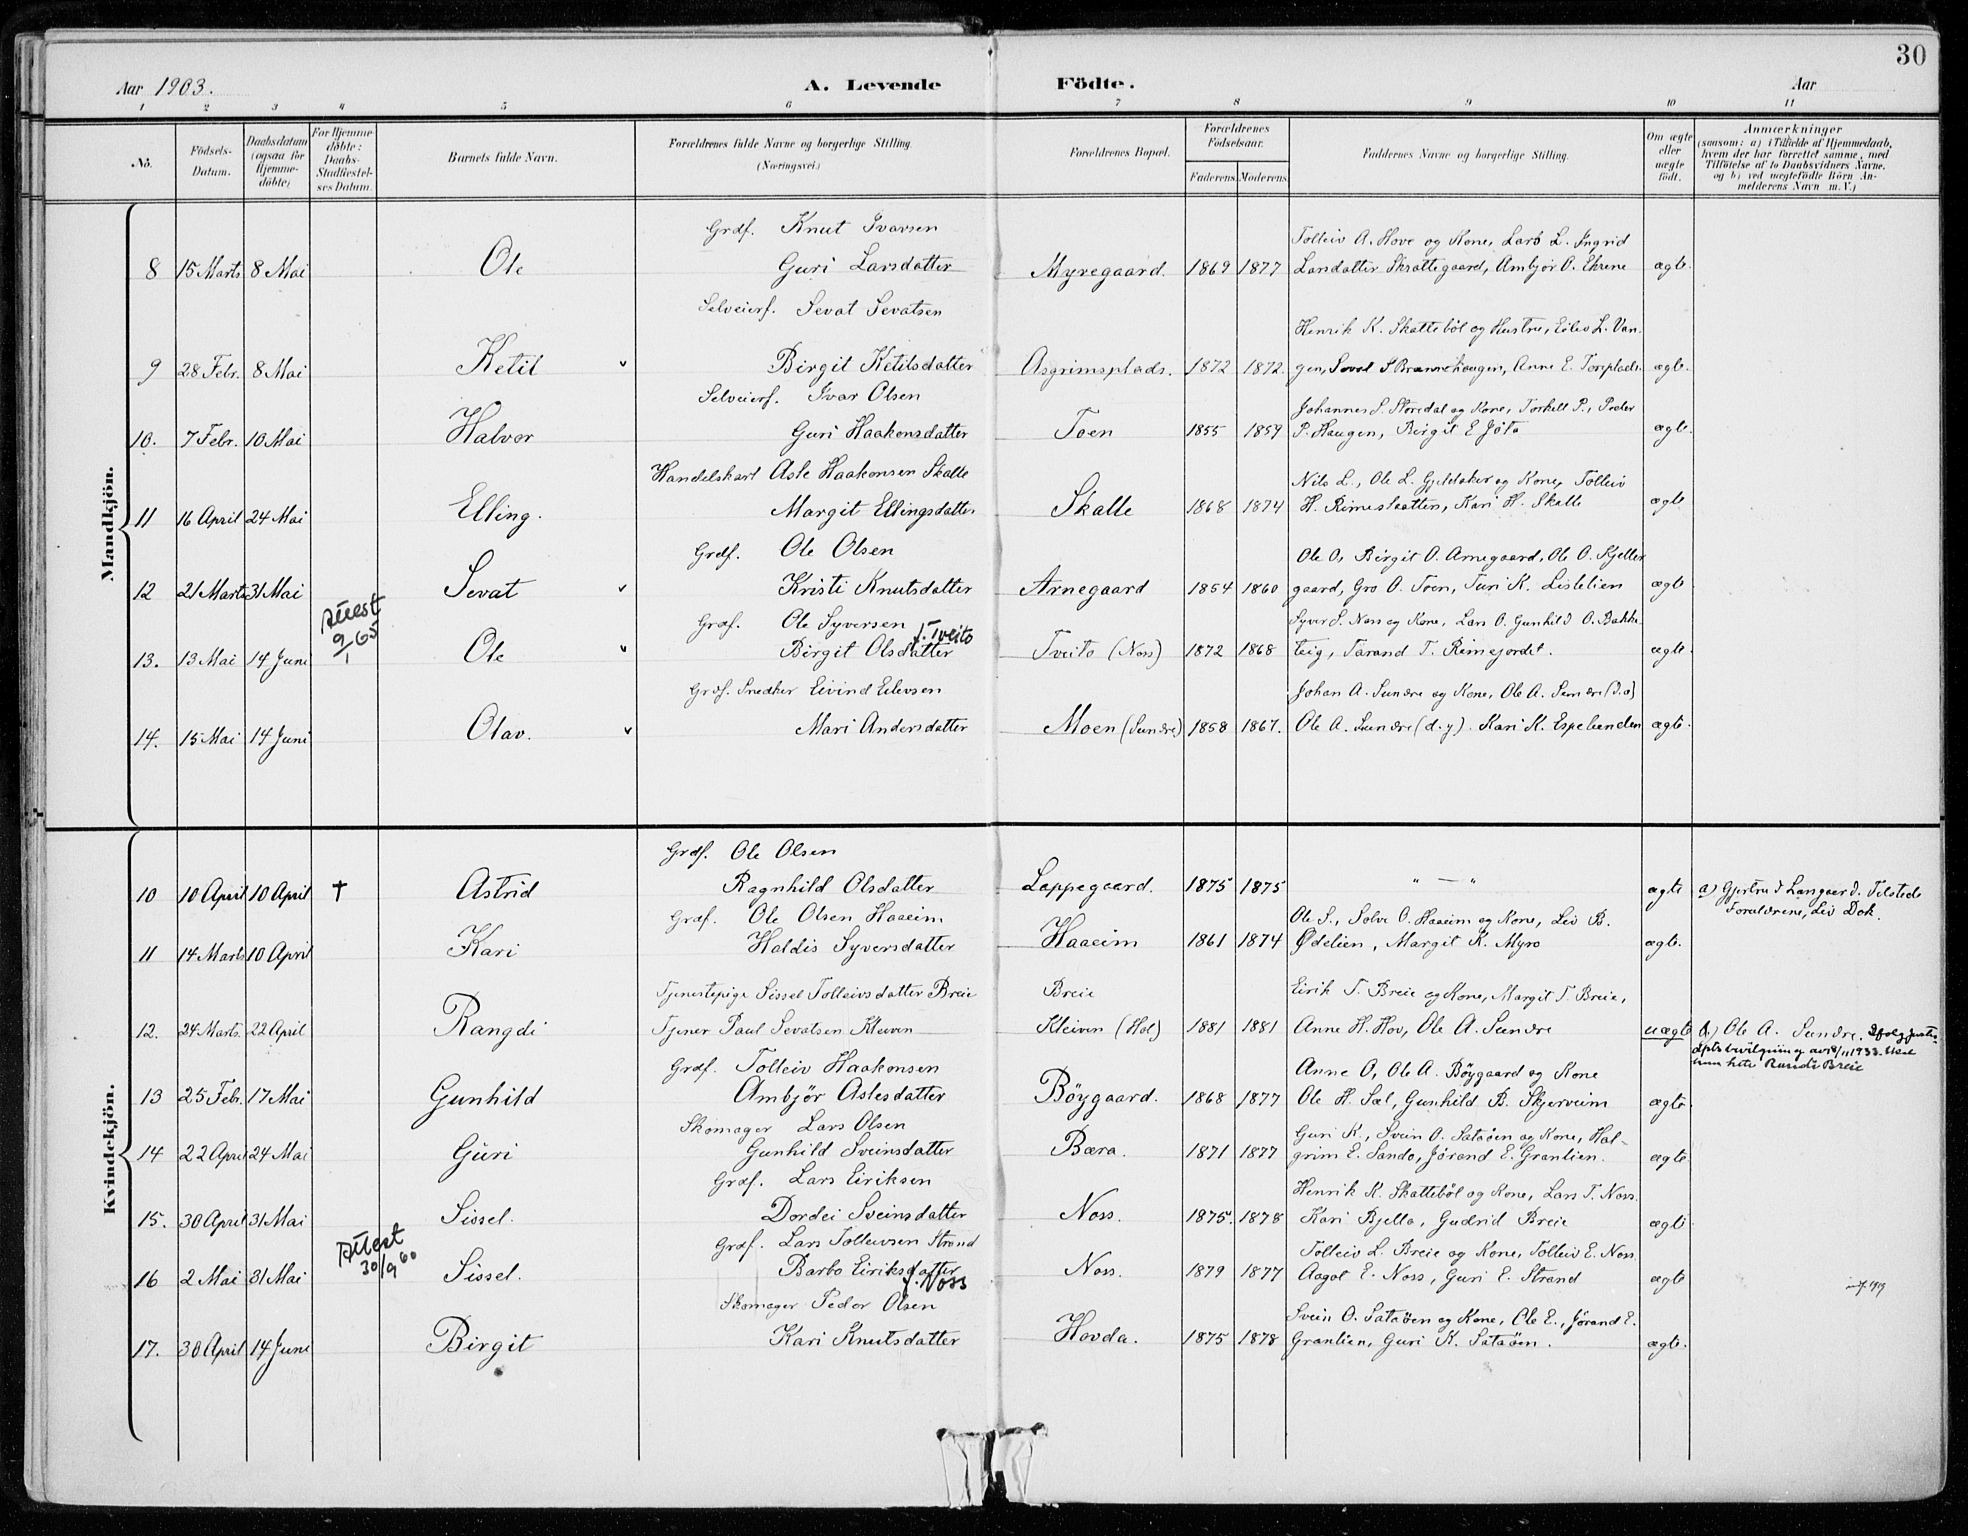 30
Aar 1903. A. Levende Födte. Aar
1 2 3 4 5 6 7 8 9 10 11
No. Födsels-Datum. Daabsdatum (ogsaa for Hjemme-döbte) For Hjemme-döbte: Daabs-Stadfæstel-ses Datum. Barnets fulde Navn. Forældrenes fulde Navne og borgerlige Stilling. (Næringsvei.) Forældrenes Bopæl. Forældrenes Födselsaar. Faderens Moderens Faddernes Navne og borgerlige Stilling. Om ægte eller uægte födt. Anmærkninger (saasom: a) i Tilfælde af Hjemmedaab, hvem der har forrettet samme, med Tilföielse af to Daabsvidners Navne, og b) ved uægtefödte Börn An-melderens Navn m. V.)
Mandkjön.
Grdf. Knut Ivarsen Tolleiv A. Hove og Kone, Lars L. Ingrid
8 15 Marts 8 Mai Ole Guri Larsdatter Myregaard. 1869 1877 Larsdatter Skrattegaard, Ambjør O. Ekrene ægte.
Selveierf. Sevat Sevatsen Henrik K. Skattebøl og Hustru, Eilev L. Van
9 28 Febr. 8 Mai Ketil Birgit Ketilsdatter Asgrimsplads. 1872 1872. gen, Sevat S Brennehaugen, Anne E. Toreplads ægte.
Selveierf. Ivar Olsen Johannes S. Stordal og Kone, Torkell P., Peder
10. 7 Febr. 10 Mai Halvor Guri Haakonsdatter Toen 1855 1859 P. Haugen, Birgit E Jøto ægte.
Handelskarl Asle Haakonsen Skalle Nils L., Ole L. Gjeldaker og Kone, Tolleiv
11 16 April 24 Mai Elling. Margit Ellingsdatter Skalle 1868 1874 H. Rimeslaatten, Kari H. Skalle ægte
Grdf. Ole Olsen Ole O, Birgit O. Arnegaard, Ole O. Kjeller
12 21 Marts 31 Mai Sevat Kristi Knutsdatter Arnegaard 1854 1860 gaard, Gro O. Toen, Turi K. Lislelien ægte
Attest 9/1 65 Grdf. Ole Syversen Syver S. Noss og Kone, Lars O. Gunhild O. Bakke
f. Tveito
13. 13 Mai 14 Juni Ole Birgit Olsdatter Tveito (Noss) 1872 1868 teig, Tarand T. Rimejordet. ægte.
Grdf. Snedker Eivind Eilevsen Johan A. Sundre og Kone, Ole A. Sundre (d.æ)
14. 15 Mai 14 Juni Olav. Mari Andersdatter Moen (Sundre) 1858 1867. Ole A. Sundre (d.y). Kari K. Espelienden ægte.
Kvindekjön.
Grdf. Ole Olsen
10 10 April 10 April † Astrid Ragnhild Olsdatter Lappegaard. 1875 1875 " — " ægte a) Gjertrud Langaard. Tilstede
Grdf. Ole Olsen Haaeim Ole S., Solve O. Haaeim og Kone, Leiv B. Forældrene, Leiv Dok.
11 14 Marts 10 April Kari Haldis Syversdatter Haaeim 1861 1874 Ødelien, Margit K. Myro ægte.
Tjenestepige Sissel Tolleivsdatter Breie Breie Eirik T. Breie og Kone, Margit T. Breie,
12. 24 Marts. 22 April Rangdi Tjener Paul Sevatsen Kleiven Kleiven (Hol) 1881 1881 Anne H. Hov, Ole A. Sundre uægte b) Ole A. Sundre. Ifølg Justis
dpts bevilgning av 18/11 1933. skal
hun hete Randi Breie
Grdf. Tolleiv Haakonsen Anne O, Ole A. Böygaard og Kone
13 25 Feb. 17 Mai Gunhild Ambjör Aslesdatter Böygaard. 1868 1877 Ole H. Sæl, Gunhild B. Skjerveim ægte.
Skomager Lars Olsen Guri K., Svein O. Sataöen og Kone, Hal-
14 22 April 24 Mai Guri Gunhild Sveinsdatter Bæra. 1871 1877 grim E. Sando, Jörand E. Granlien. ægte.
Grdf. Lars Eiriksen Henrik K. Skattebøl og Kone, Lars T. Noss.
15. 30 April 31 Mai Sissel. Dordei Sveinsdatter Noss. 1875. 1878 Kari Bjella, Gudrid Breie ægte
Attest 30/9 60 Grdf. Lars Tolleivsen Strand Tolleiv L. Breie og Kone, Tolleiv E. Noss.
16 2 Mai 31 Mai Sissel. Barbo Eiriksdatter Noss. 1879 1877 Aagot E. Noss, Guri E. Strand ægte
f. Noss
Skomager Peder Olsen Svein O. Sataöen og Kone, Ole E., Jörand E.
17. 30 April 14 Juni Birgit Kari Knutsdatter Hovda. 1875 1878 Granlien, Guri K. Sataöen. ægte.